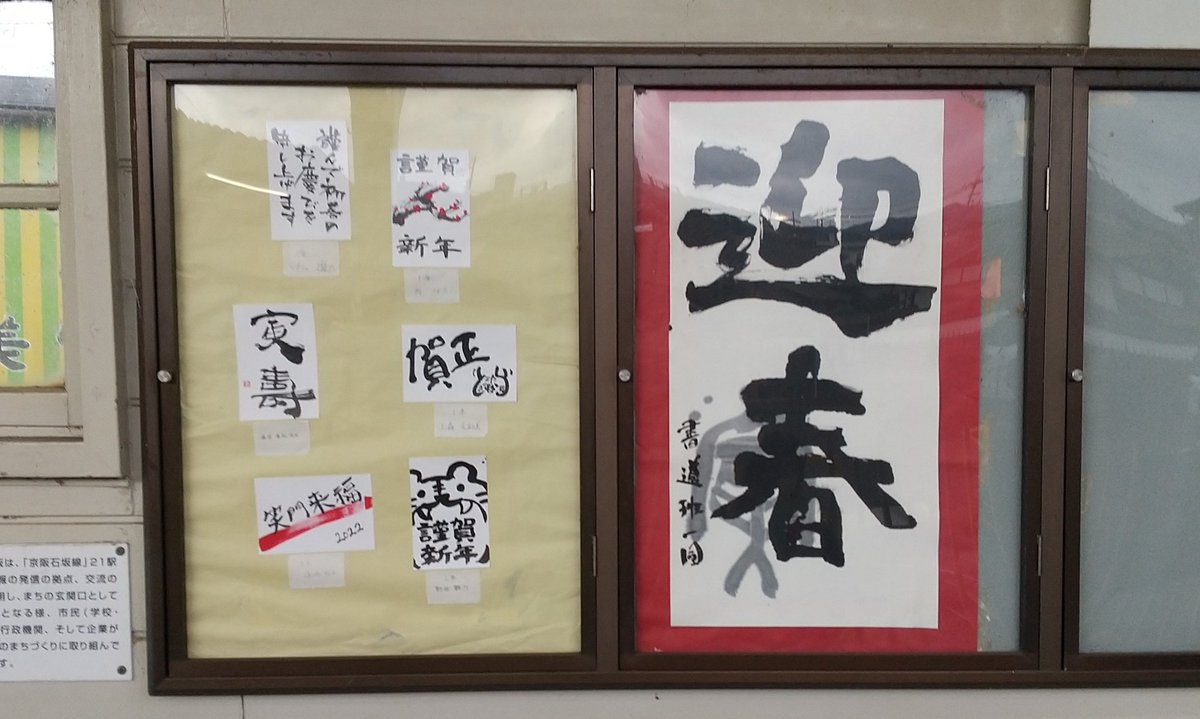 謹んで新春の
お慶びを
申し上げます
謹賀
新年
寅壽
賀正
笑門来福
2022
謹賀
新年
迎春
書道班一同
は、「京阪石坂線」21駅
報の発信の拠点、交流の
用し、まちの玄関口として
となる様、市民(学校・
行政機関、そして企業が
のまちづくりに取り組んで
す。